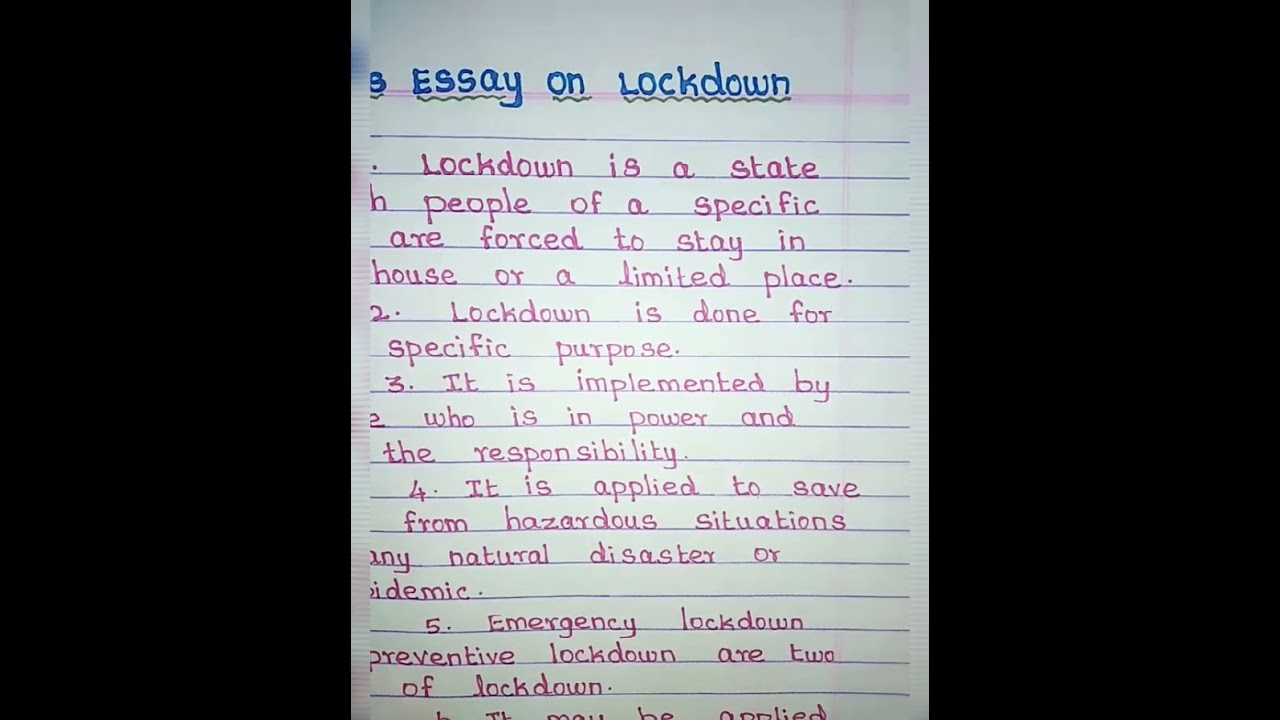 Essay on Lockdown
Lockdown is a state
people of a specific
are forced to stay in
house or a limited place.
2. Lockdown is done for
specific purpose.
3. It is implemented by
who is in power and
the responsibility.
4. It is applied to save
from hazardous situations
any natural disaster or
idemic.
5. Emergency lockdown
preventive lockdown are two
of lockdown.
It may be applied